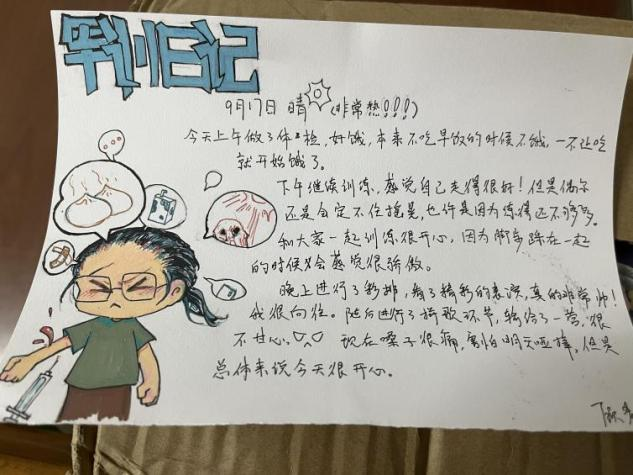 军训日记
9月17日 晴 (非常热!!!)
今天上午做了体检,好饿,本来不吃早饭的时候不饿,一不让吃
就开始饿了。
下午继续训练,感觉自己走得很好!但是偶尔
还是会定不住摇晃,也许是因为练得还不够多。
和大家一起训练很开心,因为脚步踩在一起
的时候会感觉很骄傲。
晚上进行了彩排,看了精彩的表演,真的非常帅!
我很向往。随后进行了猜歌环节,输给了一营,很
不甘心。现在嗓子很痛,害怕明天哑掉,但是
总体来说今天很开心。